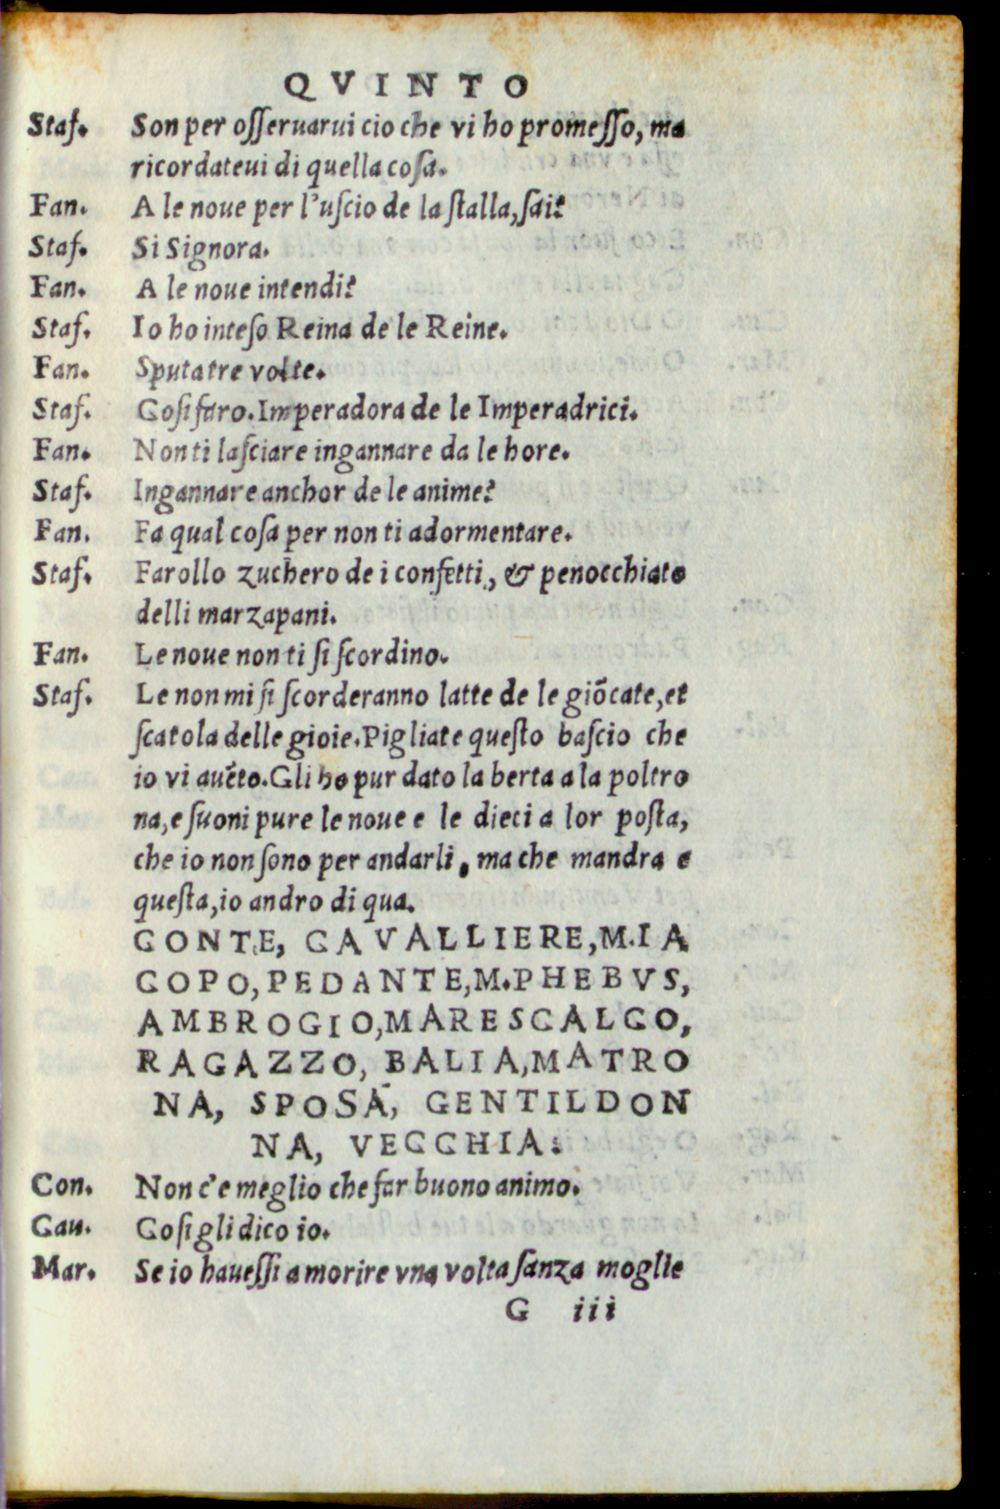 QVINTO
Staf. Son per oſſeruarui cio che vi ho promeſſo, ma
ricordateui di quella coſa.
Fan. A le noue per l'uſcio de la ſtalla, ſai?
Staf. Si Signora.
Fan. A le noue intendi?
Staf. Io ho inteſo Reina de le Reine.
Fan. Sputa tre volte.
Staf. Coſi faro. Imperadora de le Imperadrici.
Fan. Non ti laſciare ingannare da le hore.
Staf. Ingannare anchor de le anime?
Fan. Fa qual coſa per non ti adormentare.
Staf. Farollo zuchero de i confetti, & penocchiato
delli marzapani.
Fan. Le noue non ti ſi ſcordino.
Staf. Le non mi ſi ſcorderanno latte de le giōcate, et
ſcatola delle gioie. Pigliate queſto baſcio che
io vi auēto. Gli ho pur dato la berta a la poltro
na, e ſuoni pure le noue e le dieci a lor poſta,
che io non ſono per andarli, ma che mandra e
queſta, io andro di qua.
CONTE, CAVALLIERE, M. IA
COPO, PEDANTE, M. PHEBVS,
AMBROGIO, MARESCALCO,
RAGAZZO, BALIA, MATRO
NA, SPOSA, GENTILDON
NA, VECCHIA.
Con. Non c'e meglio che far buono animo.
Cau. Coſi gli dico io.
Mar. Se io haueſſi a morire vna volta ſanza moglie
G iii